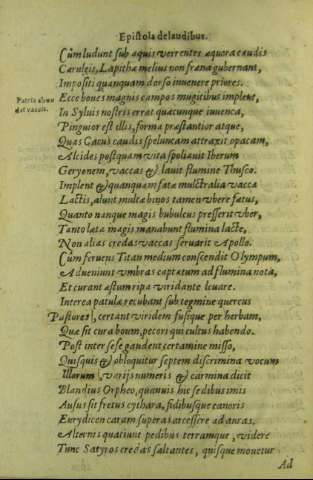 Epistola de laudibus.
Cùm ludunt sub aquis verrentes æquora caudis
Cæruleis, Lapithæ melius non fræna gubernant,
Impositi quanquam dorso invenere priores.
Ecce boues magnos campos mugitibus implent,
Patria abundat vaccis.
In Syluis nostris errat quacunque iuuenca,
Pinguior est illis, forma præstantior atque,
Quas Cacus caudis speluncam attraxit opacam,
Alcides postquam vita spoliauit Iberum
Geryonem, vaccas & lauit flumine Thusco.
Implent & quanquam fatæ mulctralia vacca
Lactis, alunt multæ binos tamen vbere fœtus,
Quanto nanque magis bubulcus presserit vber,
Tanto læta magis manabunt flumina lacte,
Non alias credas vaccas seruarit Apollo.
Cùm feruens Titan medium conscendit Olympum,
Adueniunt vmbras captatum ad flumina nota,
Et curant æstum ripa viridante leuare.
Interea patulæ recubant sub tegmine quercus
Pastores, certant viridem fusique per herbam,
Quæ sit cura boum, pecori qui cultus habendo.
Post inter sese gaudent certamine misso,
Quisquis & obloquitur septem discrimina vocum
Illorum, varijs numeris & carmina dicit
Blandius Orpheo, quamuis hic sedibus imis
Ausus sit fretus cythara, fidibusque canoris
Eurydicen caram superas arcessere ad auras.
Alternis quatiunt pedibus terramque, videre
Tunc Satyros credas saltantes, quisque mouetur
Ad